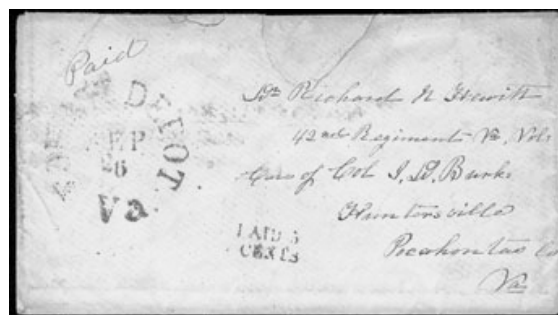 Paid
DEPOT
SEP
26
Va.
PAID 5
CENTS
Dr Richard N Hewitt
42nd Regiment Va. Vols
Care of Col J. A. Burks
Huntersville
Pocahontas Co
Va